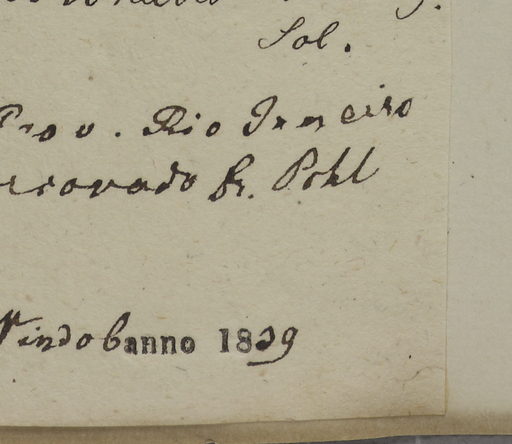 Sol.
Prov. Rio Janeiro
Dr. Pohl
Vindob anno 1839